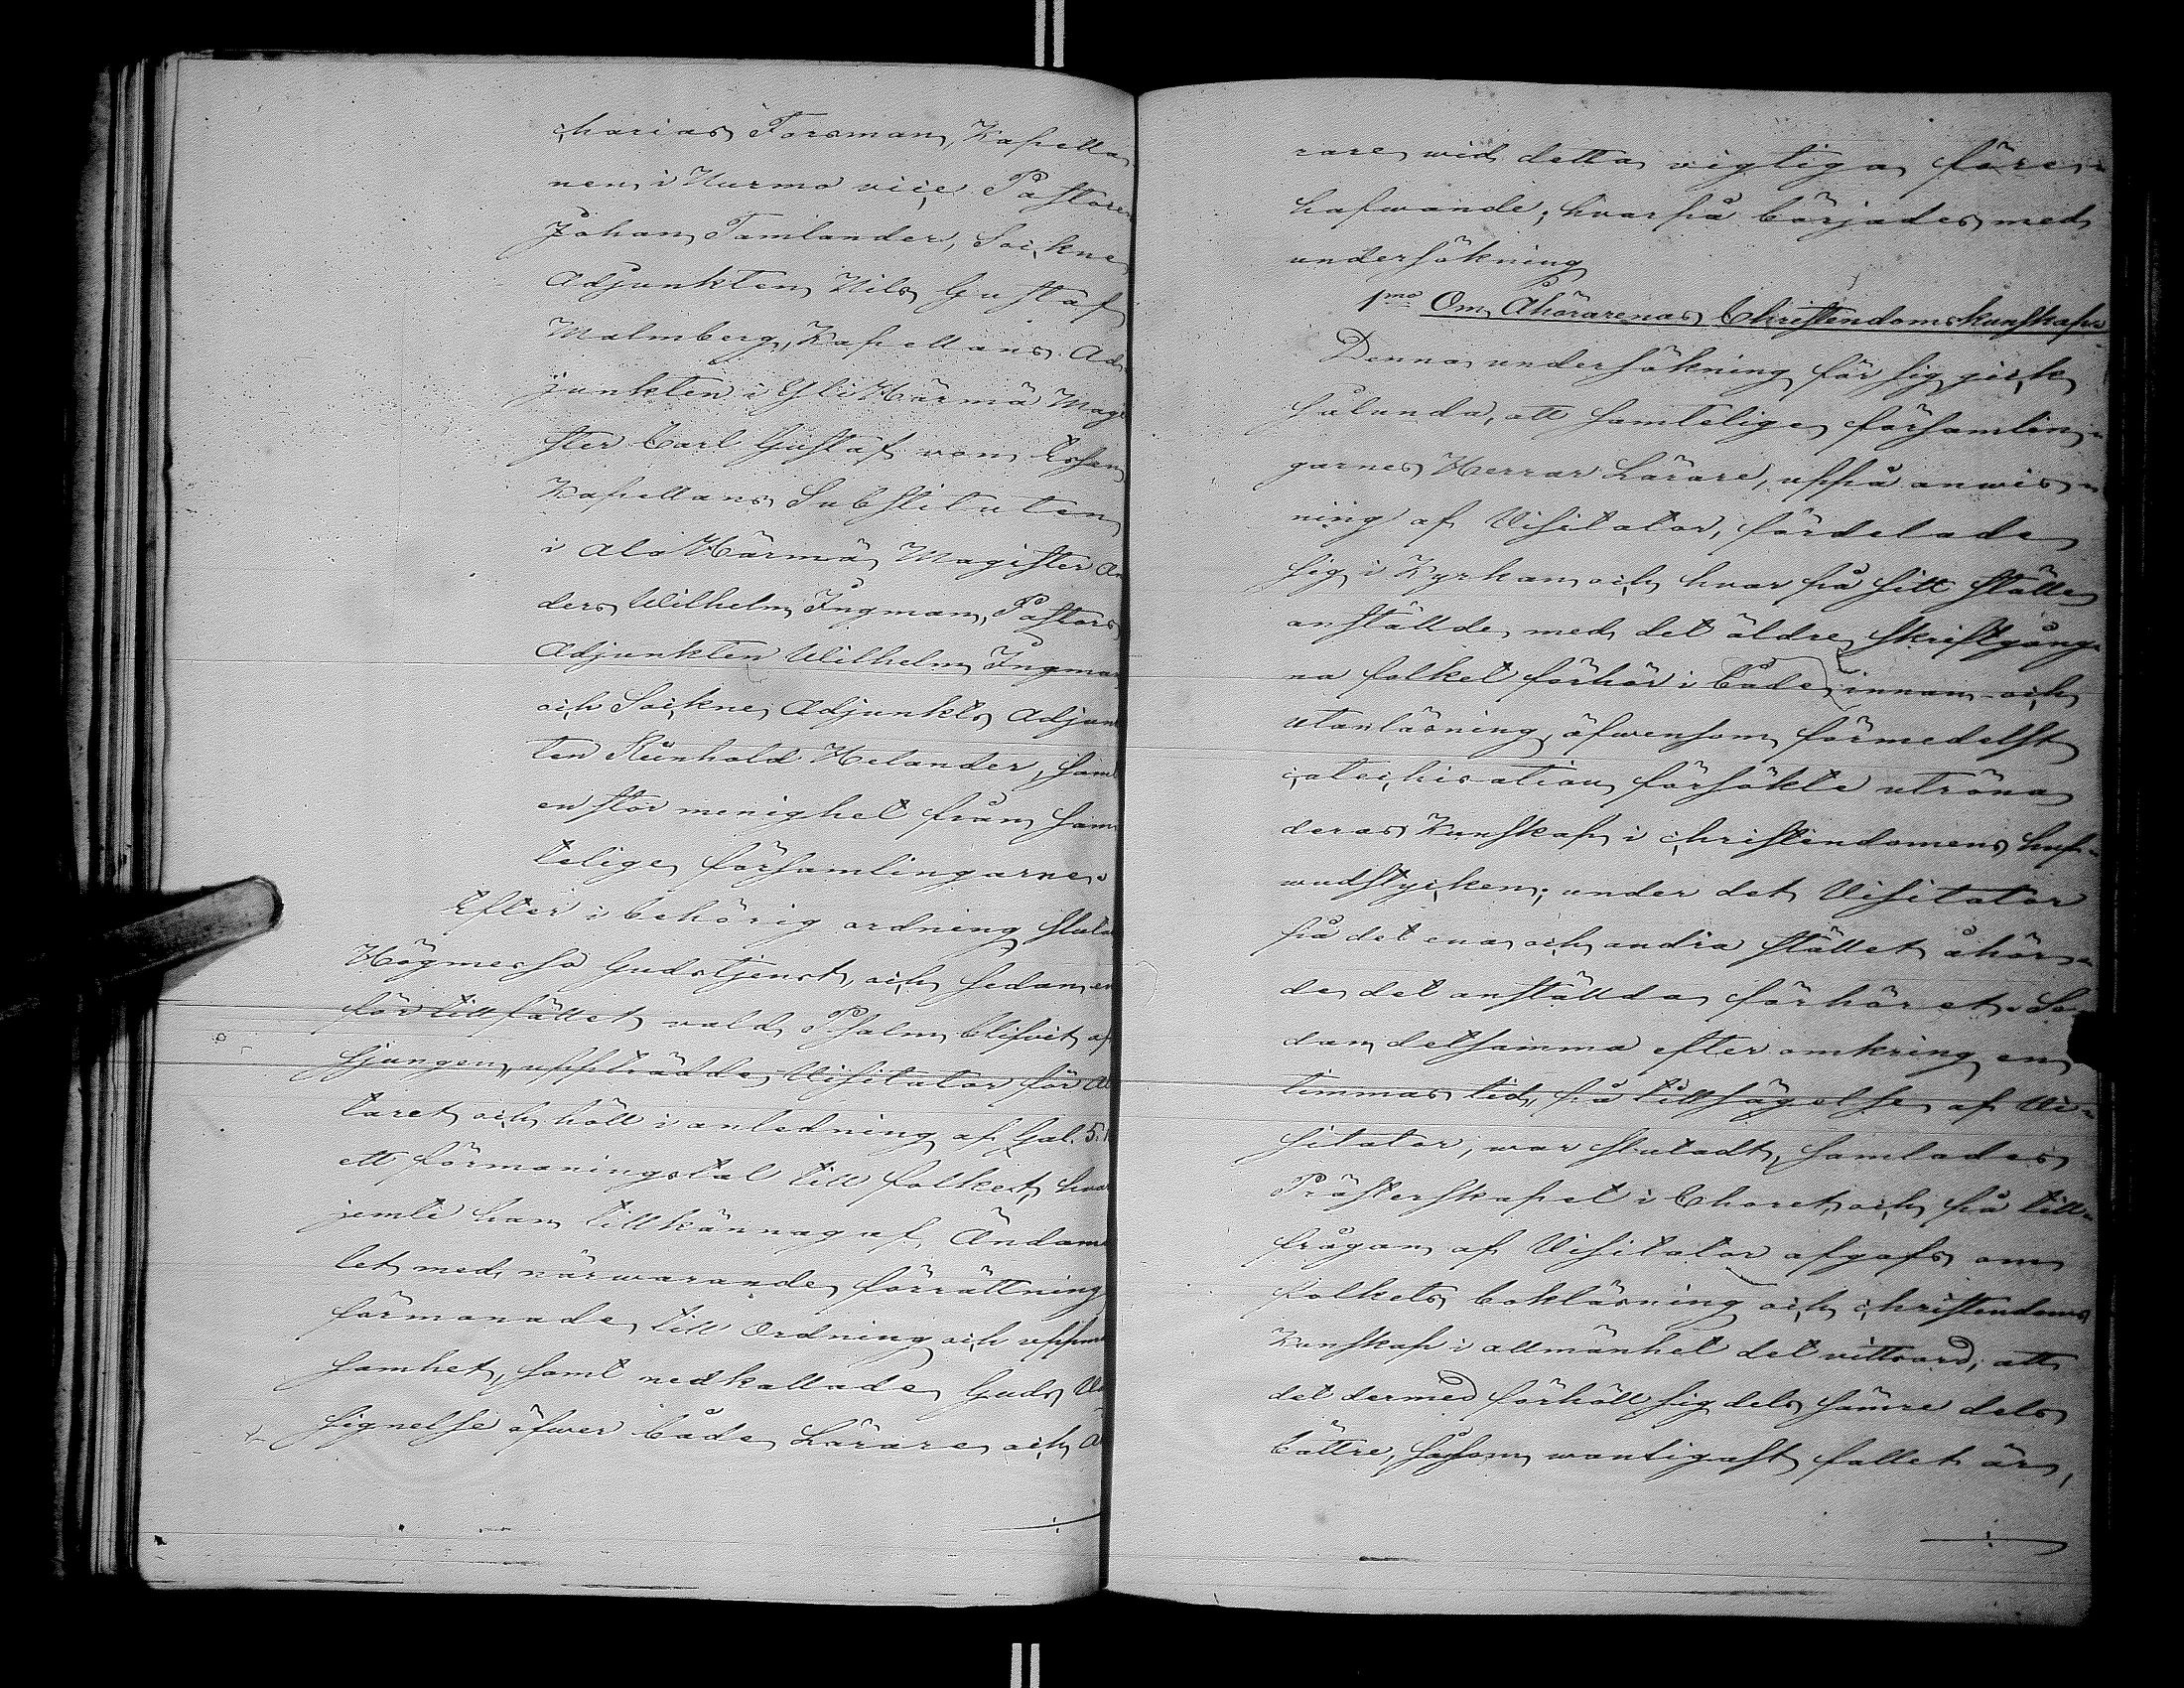 charias Forsman, Kapella
nen i Nurmo vice Pastoren
Johan Tamlander, Sockne
Adjunkten Nils Gustaf
Malmberg, Kapellans Ad
junkten i Ylihärmä Magi
ster Carl Gustaf von Essen
Kapellans Substituten
i Alahärmä Magister An
ders Wilhelm Ingman, Pastors
Adjunkten Wilhelm Ingman
och Sockne Adjunkts Adjunk
ten Reinhold Helander, samt
en stor menighet från sam
telige församlingarne.
Efter i behörig ordning slutad
Högmesso Gudstjenst, och sedan en
för tillfället vald Psalm blifvit af
sjungen, uppträdde Visitator för Al
taret och höll i anledning af Gal. 5:1
ett förmaningstal till folket, hvar
jemte han tillkännagaf Ändamå
let med närwarande förrättning
förmanade till Ordning och uppmärk
samhet, samt nedkallade Guds Wäl
signelse öfwer både Lärare och Åhö
rare wid detta vigtiga före-
hafwande; hvarpå börjades med
undersökning
1mo Om Åhörarenas Christendomskunskap.
Denna undersökning för sig gick
sålunda, att samtelige församlin-
garnes Herrar Lärare, uppå anwis-
ning af Visitator, fördelade
sig i Kyrkan och hvar på sitt ställe
anställde med det äldre skriftgång-
na folket förhör i både innan och
utanläsning, äfwensom förmedelst
catechisation försökte utröna
deras Kunskap i christendomens huf-
wudstycken; under det Visitator
på det ena och andra stället åhör-
de det anställda förhöret. Se-
dan detsamma efter omkring en
timmas tid, på tillsägelse af Vi-
sitator, war slutadt, samlades
Prästerskapet i Choret, och på till-
frågan af Visitator afgafs om
folkets bokläsning och christendoms
Kunskap i allmänhet det vittsord, att
det dermed förhöll sig dels sämre dels
bättre, såsom wanligast fallet är,